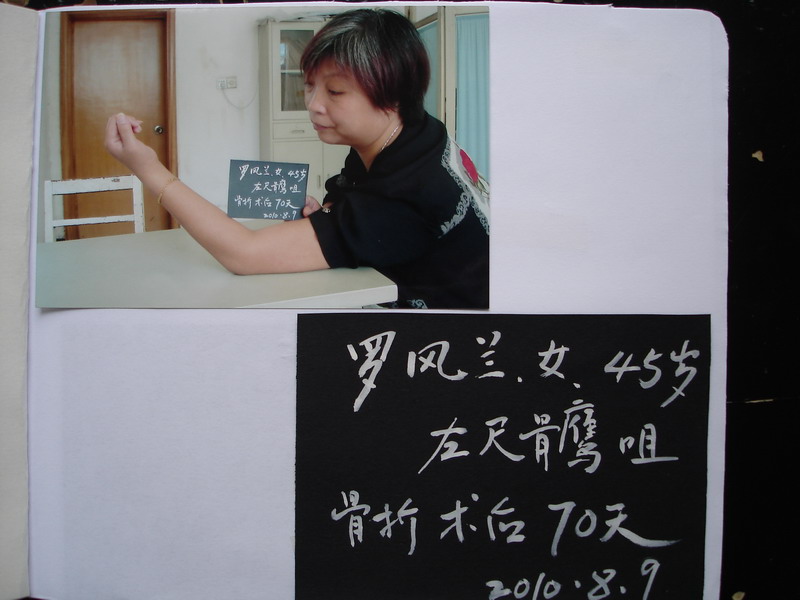 罗风兰、女、45岁
左尺骨鹰咀
骨折术后70天
2010.8.9
罗风兰、女、45岁
左尺骨鹰咀
骨折术后70天
2010.8.9